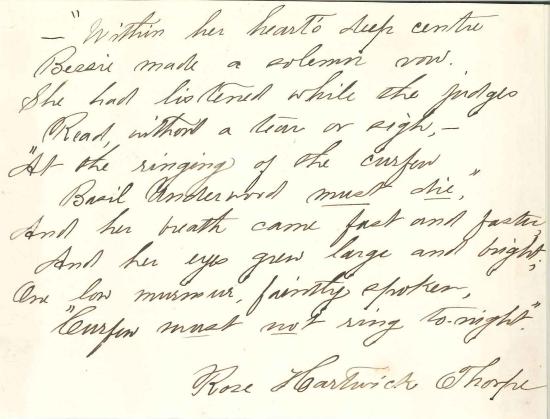 —"Within her heart's deep centre
Bessie made a solemn vow.
She had listened while the judges
Read, without a tear or sigh,—
"At the ringing of the curfew
Basil Underwood must die,"
And her breath came fast and faster,
And her eyes grew large and bright;
One low murmur, faintly spoken,
"Curfew must not ring to-night".
Rose Hartwick Thorpe